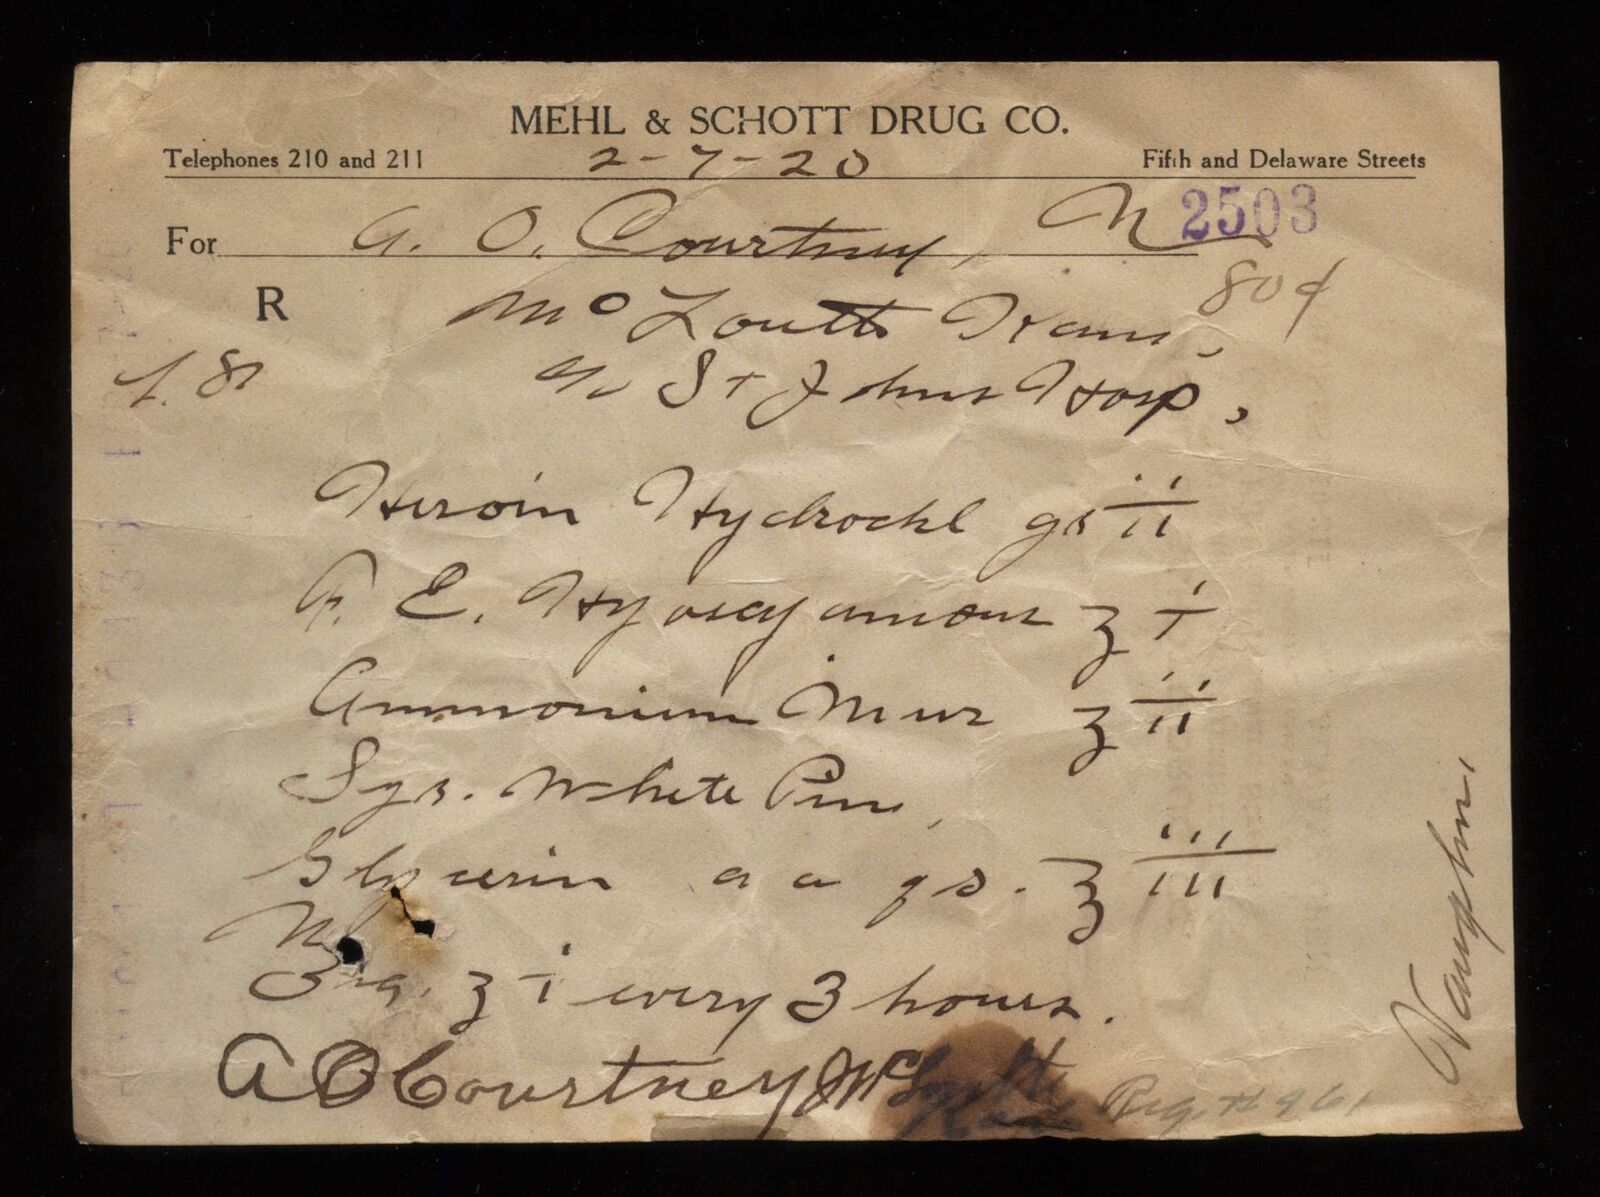 MEHL & SCHOTT DRUG CO.
Telephones 210 and 211 2-7-20 Fifth and Delaware Streets
2503
For A. O. Courtney,
80¢
R McLouth Kans,
c/o St Johns Hosp,
Heroin Hydrochl grs ii
F. E. Hyoscyamous ʒ i
Ammonium Mur ʒ ii
Syr. White Pine,
Glycerin a a q s. ℥ iii
M
Sig. ʒ i every 3 hours.
A O Courtney McLouth
Kans Reg. # 961
Vaughn.